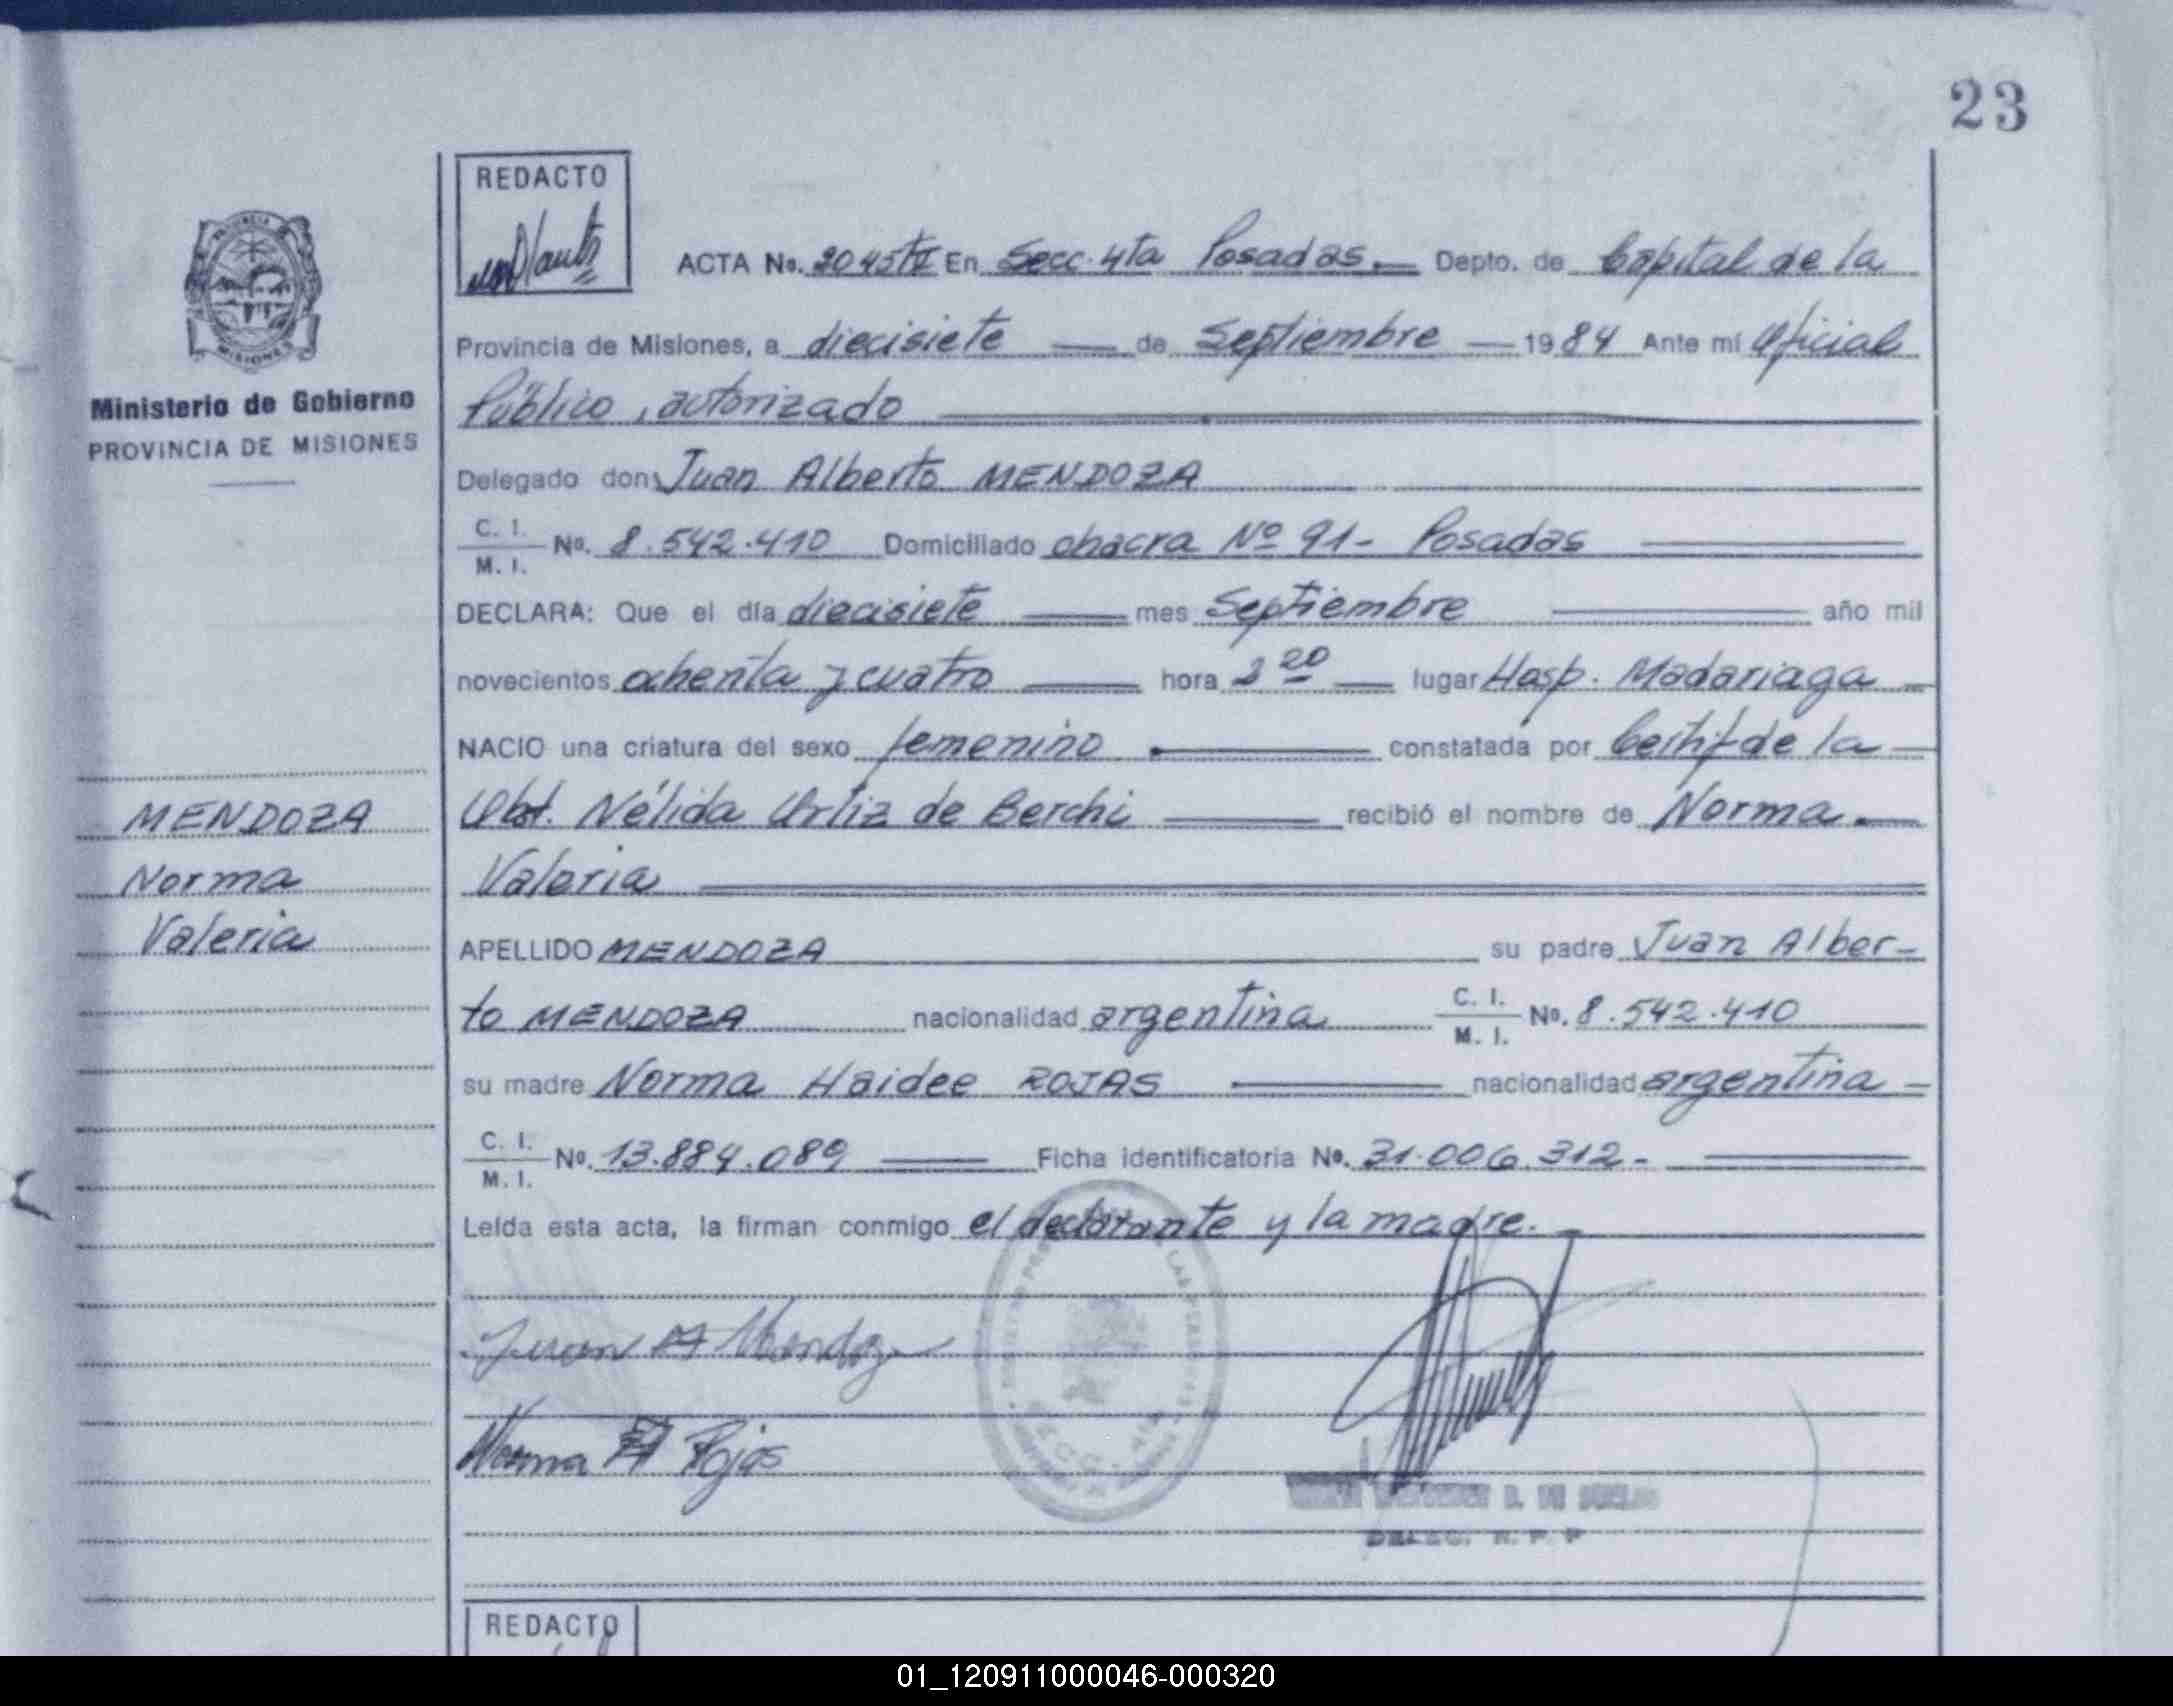 23
REDACTO
ACTA No. 2045 tº II En Secc. 4ta Posadas.— Depto. de Capital de la
Provincia de Misiones, a diecisiete — de Septiembre — 1984 Ante mí Oficial
Ministerio de Gobierno
PROVINCIA DE MISIONES
Público, autorizado
Delegado don: Juan Alberto MENDOZA
C. I.
M. I. No. 8.542.410 Domiciliado chacra Nº 91- Posadas
DECLARA: Que el día diecisiete — mes Septiembre — año mil
novecientos ochenta y cuatro — hora 2 20 — lugar Hosp. Madariaga —
NACIO una criatura del sexo femenino — constatada por Certif de la —
Obst. Nélida Ortiz de Berchi — recibió el nombre de Norma —
Valeria
MENDOZA
Norma
Valeria
APELLIDO MENDOZA su padre Juan Alber-
to MENDOZA nacionalidad argentina C. I.
M. I. No. 8.542.410
su madre Norma Haidee ROJAS — nacionalidad argentina —
C. I.
M. I. No. 13.884.089 — Ficha identificatoria No. 31.006.312.-
Leída esta acta, la firman conmigo el declarante y la madre.—
Juan A Mendoza
Norma H Rojas
DELEG. R. P. P
REDACTO
01_120911000046-000320